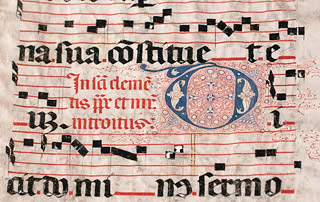 na sua. cōstitue te
In sci clemē
tis ppe et mr̄
introitus.
D i
cit do mi nꝰ. sermo